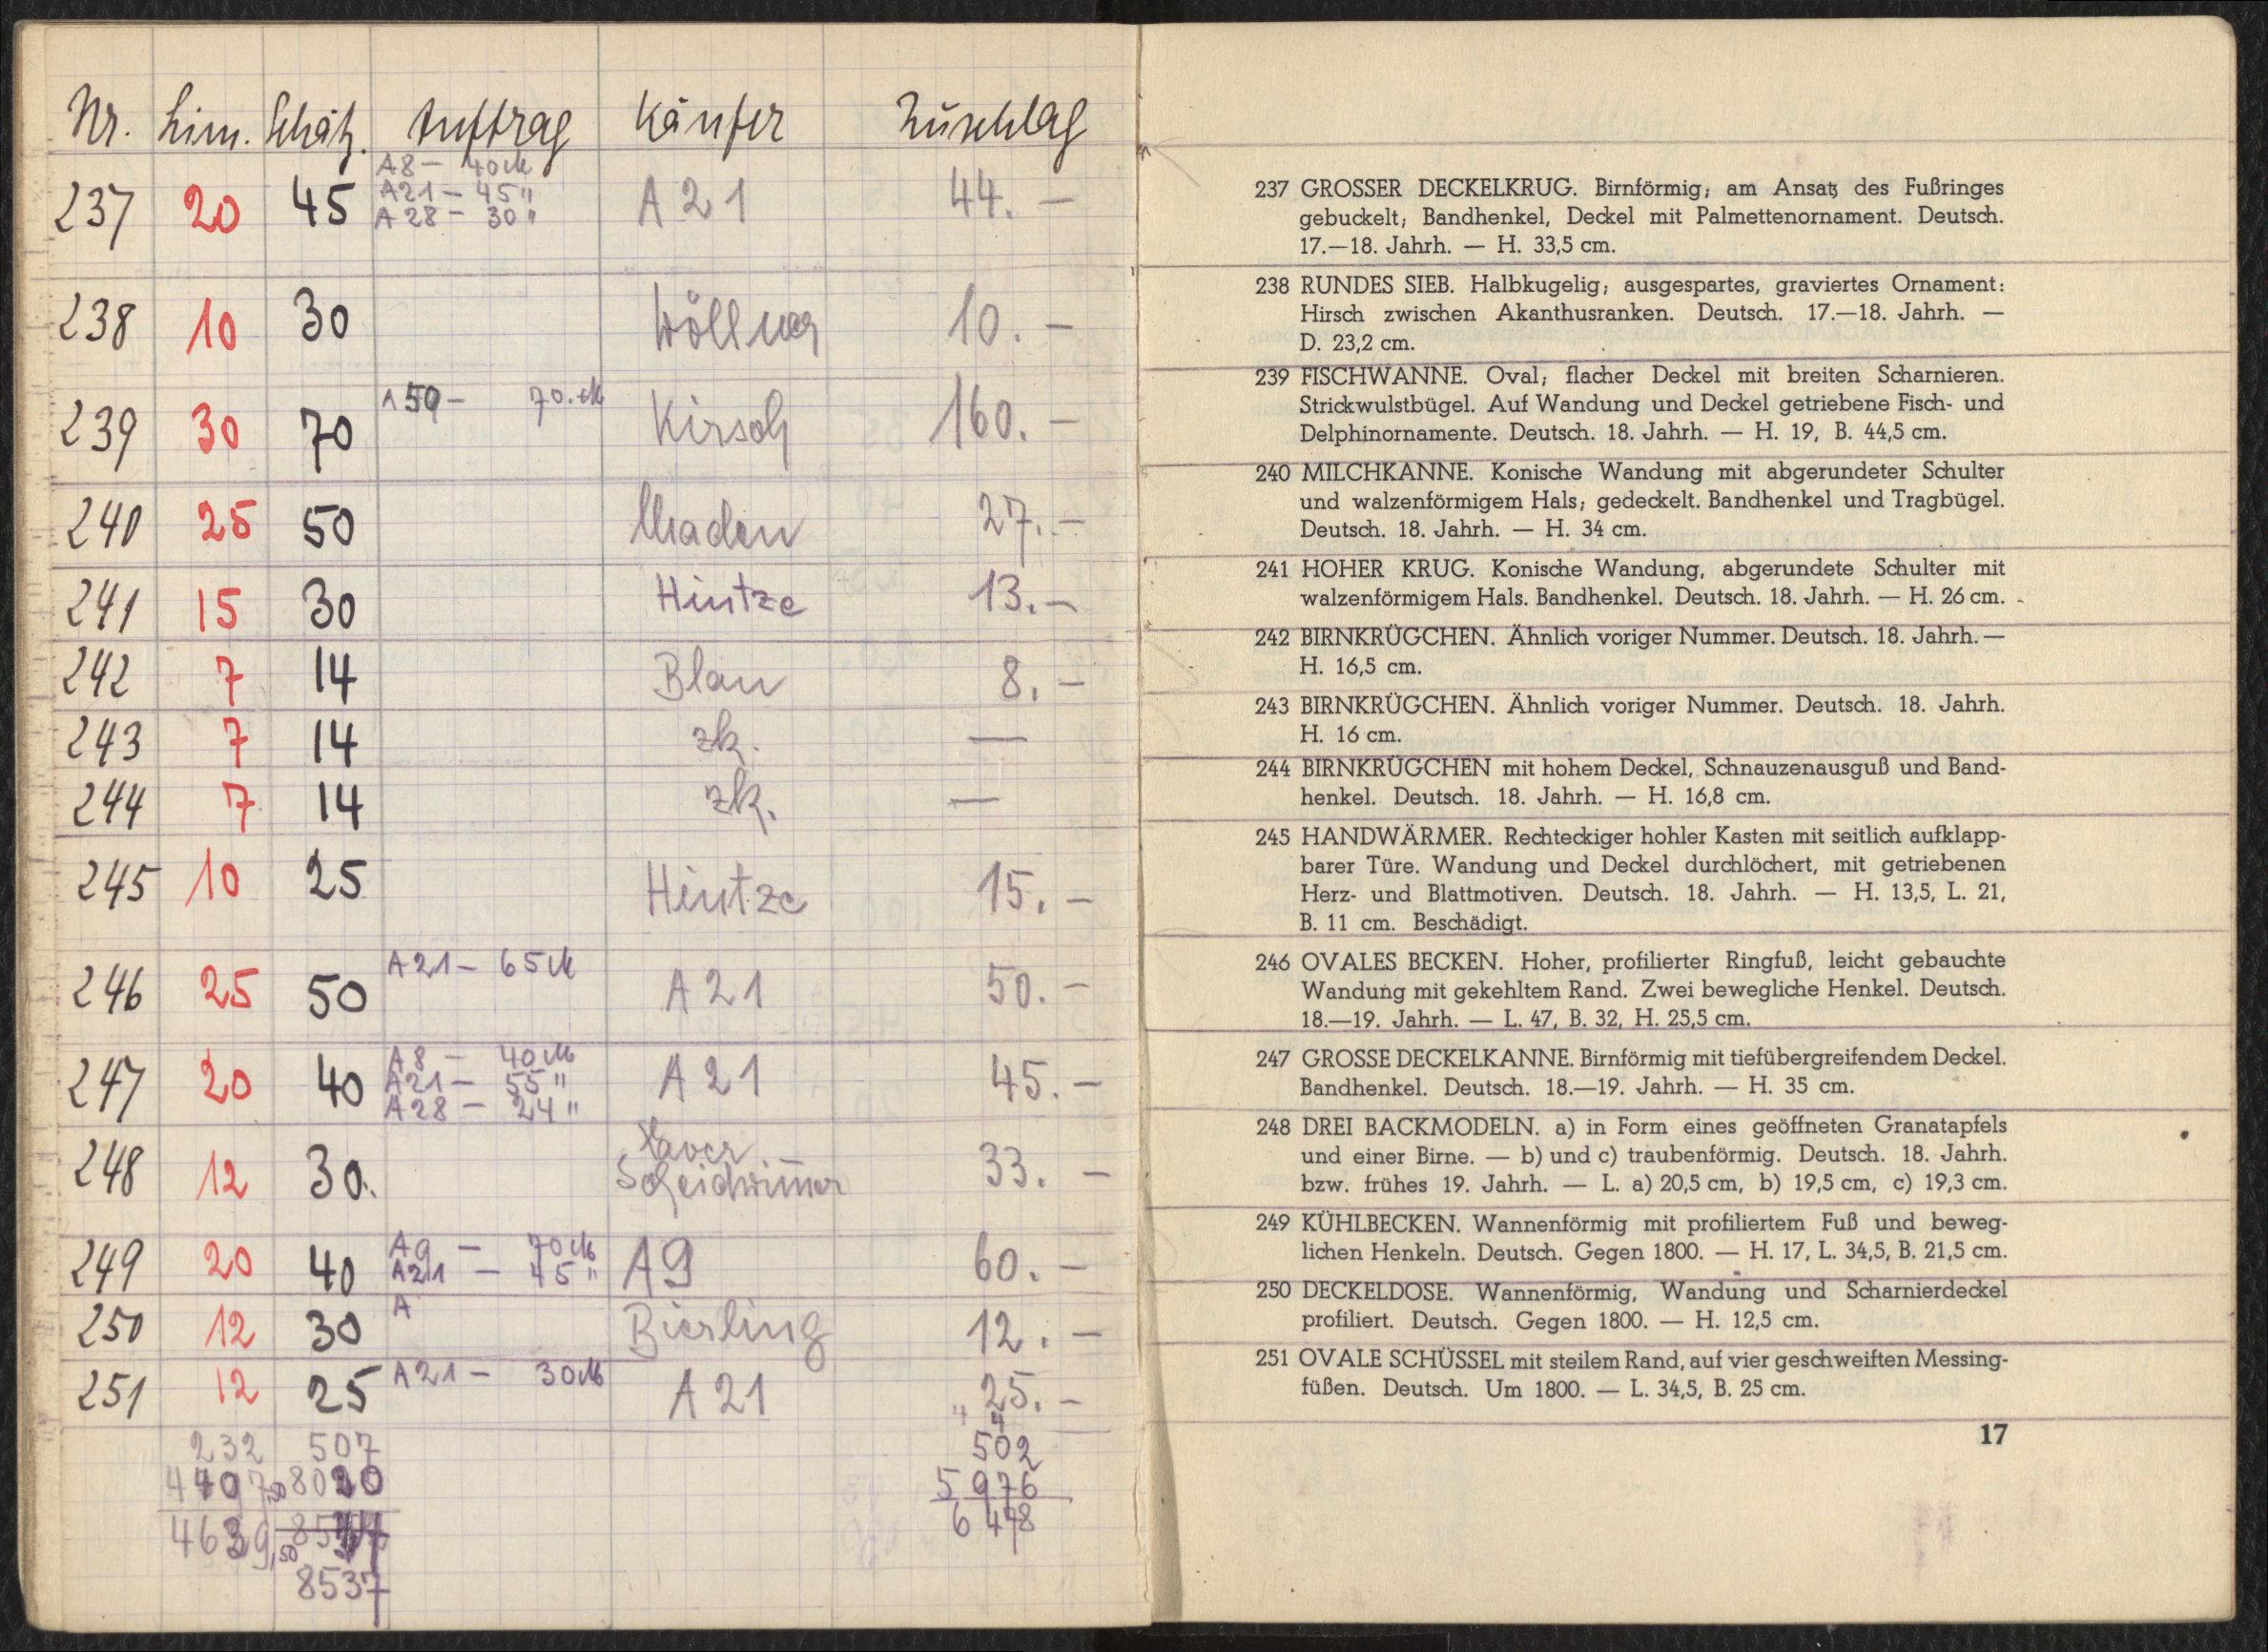 Nr. Lim. Schätz. Auftrag Käufer Zuschlag
A8 — 40 M
237 20 45 A21 — 45 " A 21 44. —
A28 — 30 "
238 10 30 Wöllner 10. —
239 30 70 A 50 — 70. M Kirsch 160. —
240 25 50 27. —
241 15 30 Hintze 13. —
242 7 14 Blau 8. —
243 7 14 zk. —
244 7 14 zk. —
245 10 25 Hintze 15. —
246 25 50 A21 — 65 M A 21 50. —
A8 — 40 M
247 20 40 A21 — 55 " A 21 45. —
A28 — 24 "
Xaver
248 12 30. Scheidwimmer 33. —
A9 — 70 M
249 20 40 A21 — 45 " A9 60. —
250 12 30 A Bierling 12. —
251 12 25 A21 — 30 M A 21 25. —
232 507 502
4407,50 8020 5 976
4639,50 6 478
8537
237 GROSSER DECKELKRUG. Birnförmig; am Ansatz des Fußringes
gebuckelt; Bandhenkel, Deckel mit Palmettenornament. Deutsch.
17.—18. Jahrh. — H. 33,5 cm.
238 RUNDES SIEB. Halbkugelig; ausgespartes, graviertes Ornament:
Hirsch zwischen Akanthusranken. Deutsch. 17.—18. Jahrh. —
D. 23,2 cm.
239 FISCHWANNE. Oval; flacher Deckel mit breiten Scharnieren.
Strickwulstbügel. Auf Wandung und Deckel getriebene Fisch- und
Delphinornamente. Deutsch. 18. Jahrh. — H. 19, B. 44,5 cm.
240 MILCHKANNE. Konische Wandung mit abgerundeter Schulter
und walzenförmigem Hals; gedeckelt. Bandhenkel und Tragbügel.
Deutsch. 18. Jahrh. — H. 34 cm.
241 HOHER KRUG. Konische Wandung, abgerundete Schulter mit
walzenförmigem Hals. Bandhenkel. Deutsch. 18. Jahrh. — H. 26 cm.
242 BIRNKRÜGCHEN. Ähnlich voriger Nummer. Deutsch. 18. Jahrh. —
H. 16,5 cm.
243 BIRNKRÜGCHEN. Ähnlich voriger Nummer. Deutsch. 18. Jahrh.
H. 16 cm.
244 BIRNKRÜGCHEN mit hohem Deckel, Schnauzenausguß und Band-
henkel. Deutsch. 18. Jahrh. — H. 16,8 cm.
245 HANDWÄRMER. Rechteckiger hohler Kasten mit seitlich aufklapp-
barer Türe. Wandung und Deckel durchlöchert, mit getriebenen
Herz- und Blattmotiven. Deutsch. 18. Jahrh. — H. 13,5, L. 21,
B. 11 cm. Beschädigt.
246 OVALES BECKEN. Hoher, profilierter Ringfuß, leicht gebauchte
Wandung mit gekehltem Rand. Zwei bewegliche Henkel. Deutsch.
18.—19. Jahrh. — L. 47, B. 32, H. 25,5 cm.
247 GROSSE DECKELKANNE. Birnförmig mit tiefübergreifendem Deckel.
Bandhenkel. Deutsch. 18.—19. Jahrh. — H. 35 cm.
248 DREI BACKMODELN. a) in Form eines geöffneten Granatapfels
und einer Birne. — b) und c) traubenförmig. Deutsch. 18. Jahrh.
bzw. frühes 19. Jahrh. — L. a) 20,5 cm, b) 19,5 cm, c) 19,3 cm.
249 KÜHLBECKEN. Wannenförmig mit profiliertem Fuß und beweg-
lichen Henkeln. Deutsch. Gegen 1800. — H. 17, L. 34,5, B. 21,5 cm.
250 DECKELDOSE. Wannenförmig, Wandung und Scharnierdeckel
profiliert. Deutsch. Gegen 1800. — H. 12,5 cm.
251 OVALE SCHÜSSEL mit steilem Rand, auf vier geschweiften Messing-
füßen. Deutsch. Um 1800. — L. 34,5, B. 25 cm.
17